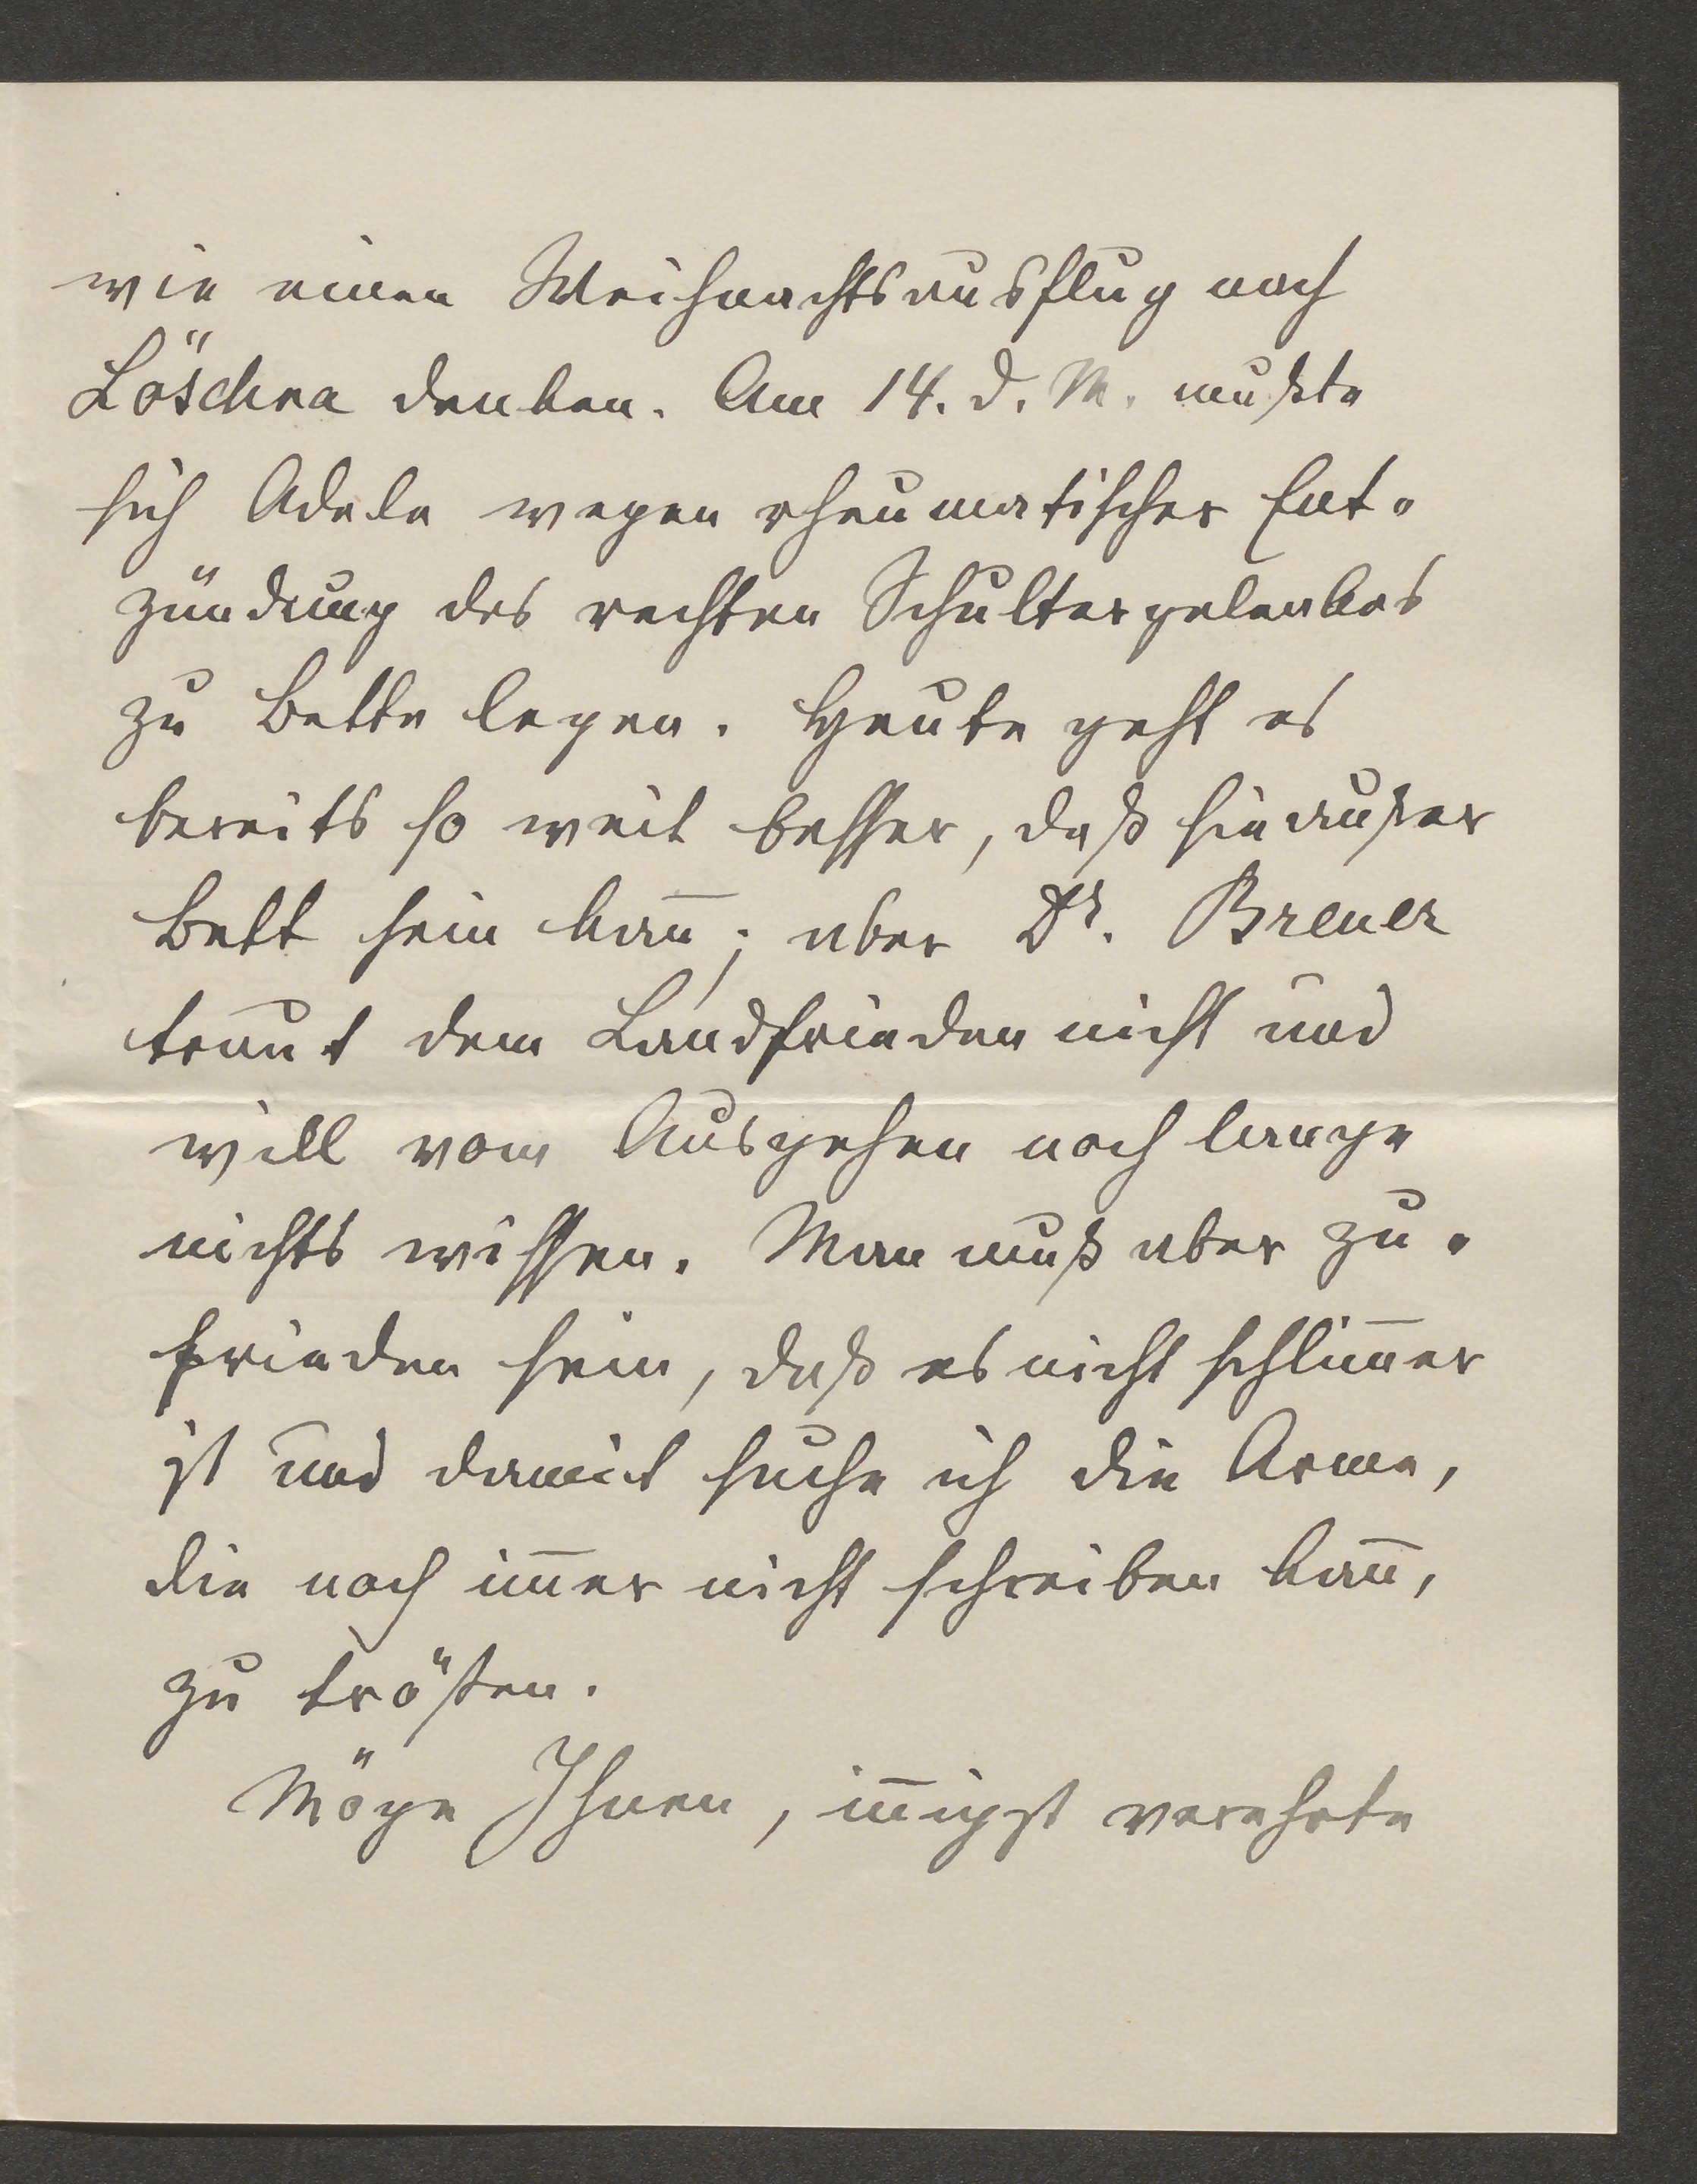 wie einen Weihnachtsausflug nach
Löschna denken. Am 14. d. M. mußte
sich Adele wegen rheumatischer Ent-
zündung des rechten Schultergelenkes
zu Bette legen. Heute geht es
bereits so weit besser, daß sie außer
Bett sein kann̄; aber Dr. Breuer
traut dem Landfrieden nicht und
will vom Ausgehen noch lange
nichts wissen. Man muß aber zu-
frieden sein, daß es nicht schlim̄er
ist und damit suche ich die Arme,
die noch im̄er nicht schreiben kan̄,
zu trösten.
Möge Ihnen, in̄igst verehrte